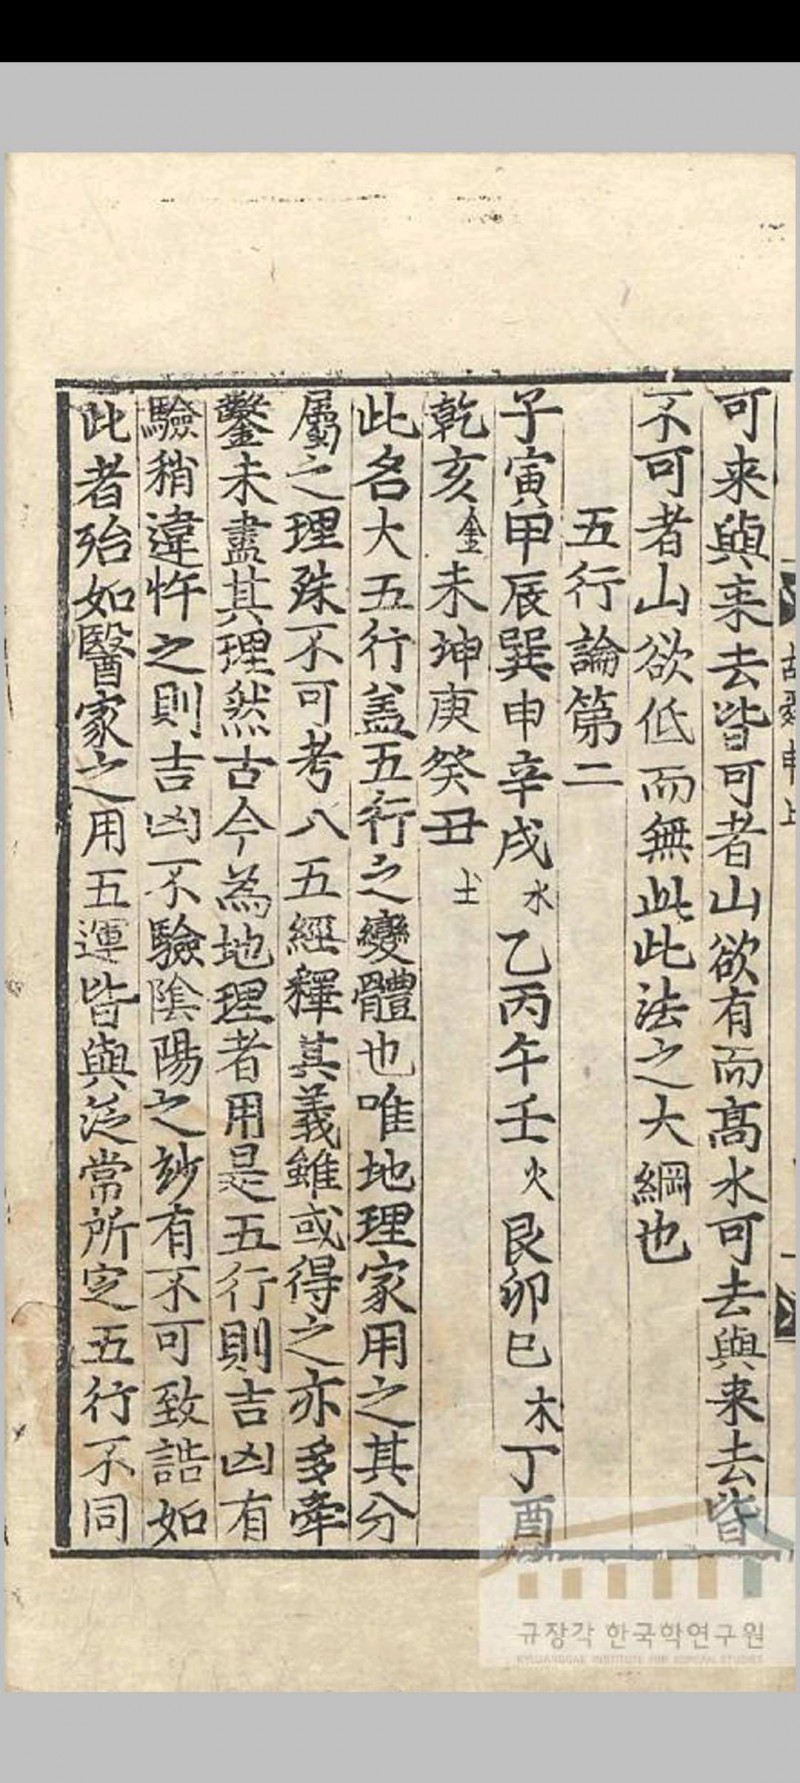 可来與来去皆可者山欲有而高水可去與来去皆
不可者山欲低而無此此法之大綱也
五行論第二
子寅甲辰巽申辛戌水乙丙午壬火艮卯巳木丁酉
乾亥金未坤庚癸丑土
此名大五行盖五行之變體也唯地理家用之其分
屬之理殊不可考八五經釋其義雖或得之亦多牽
鑿未盡其理然古今為地理者用是五行則吉凶有
驗稍違忤之則吉凶不驗陰陽之妙有不可致詰如
此者殆如醫家之用五運皆與泛常所定五行不同
규장각 한국학연구원
KYUJANGGAK INSTITUTE FOR KOREAN STUDIES